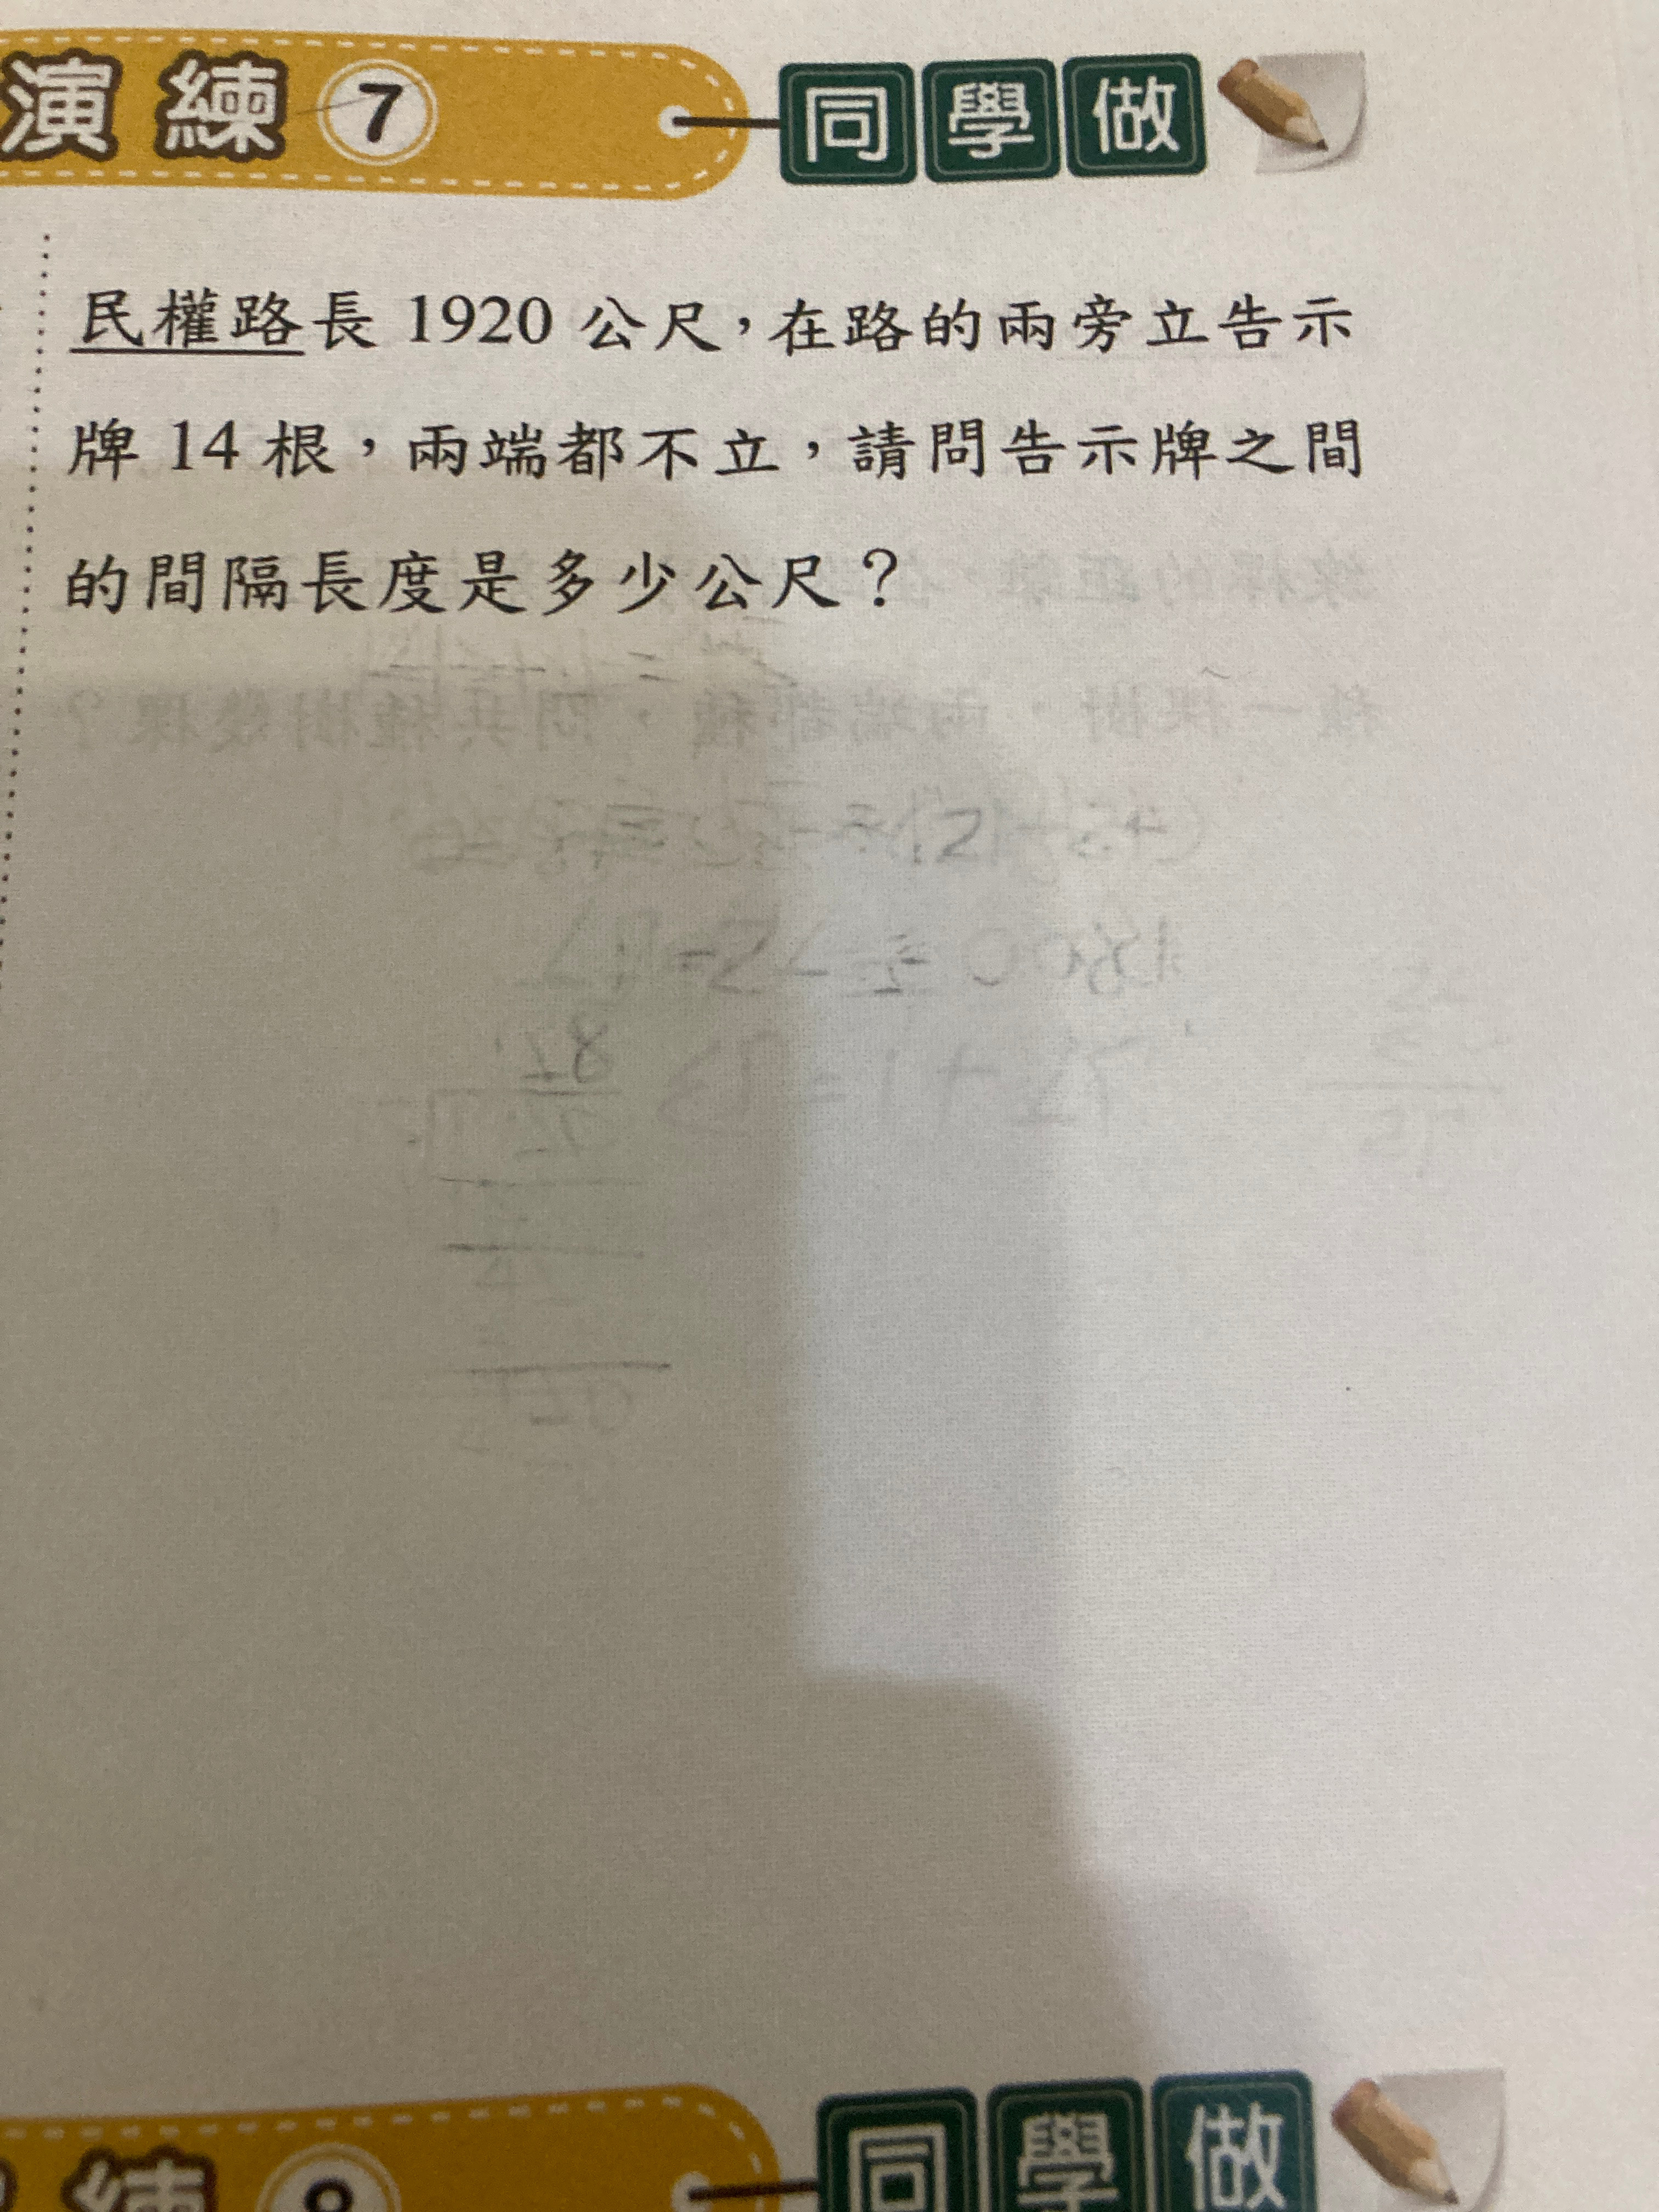 演練7 同學做
民權路長 1920 公尺，在路的兩旁立告示
牌 14 根，兩端都不立，請問告示牌之間
的間隔長度是多少公尺？
練 同學做